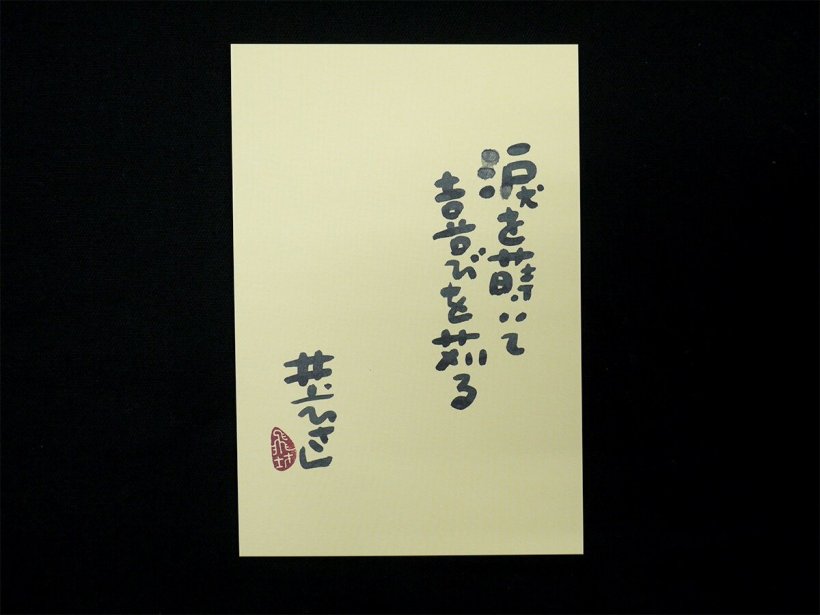 涙を蒔いて
喜びを苅る
井上ひさし